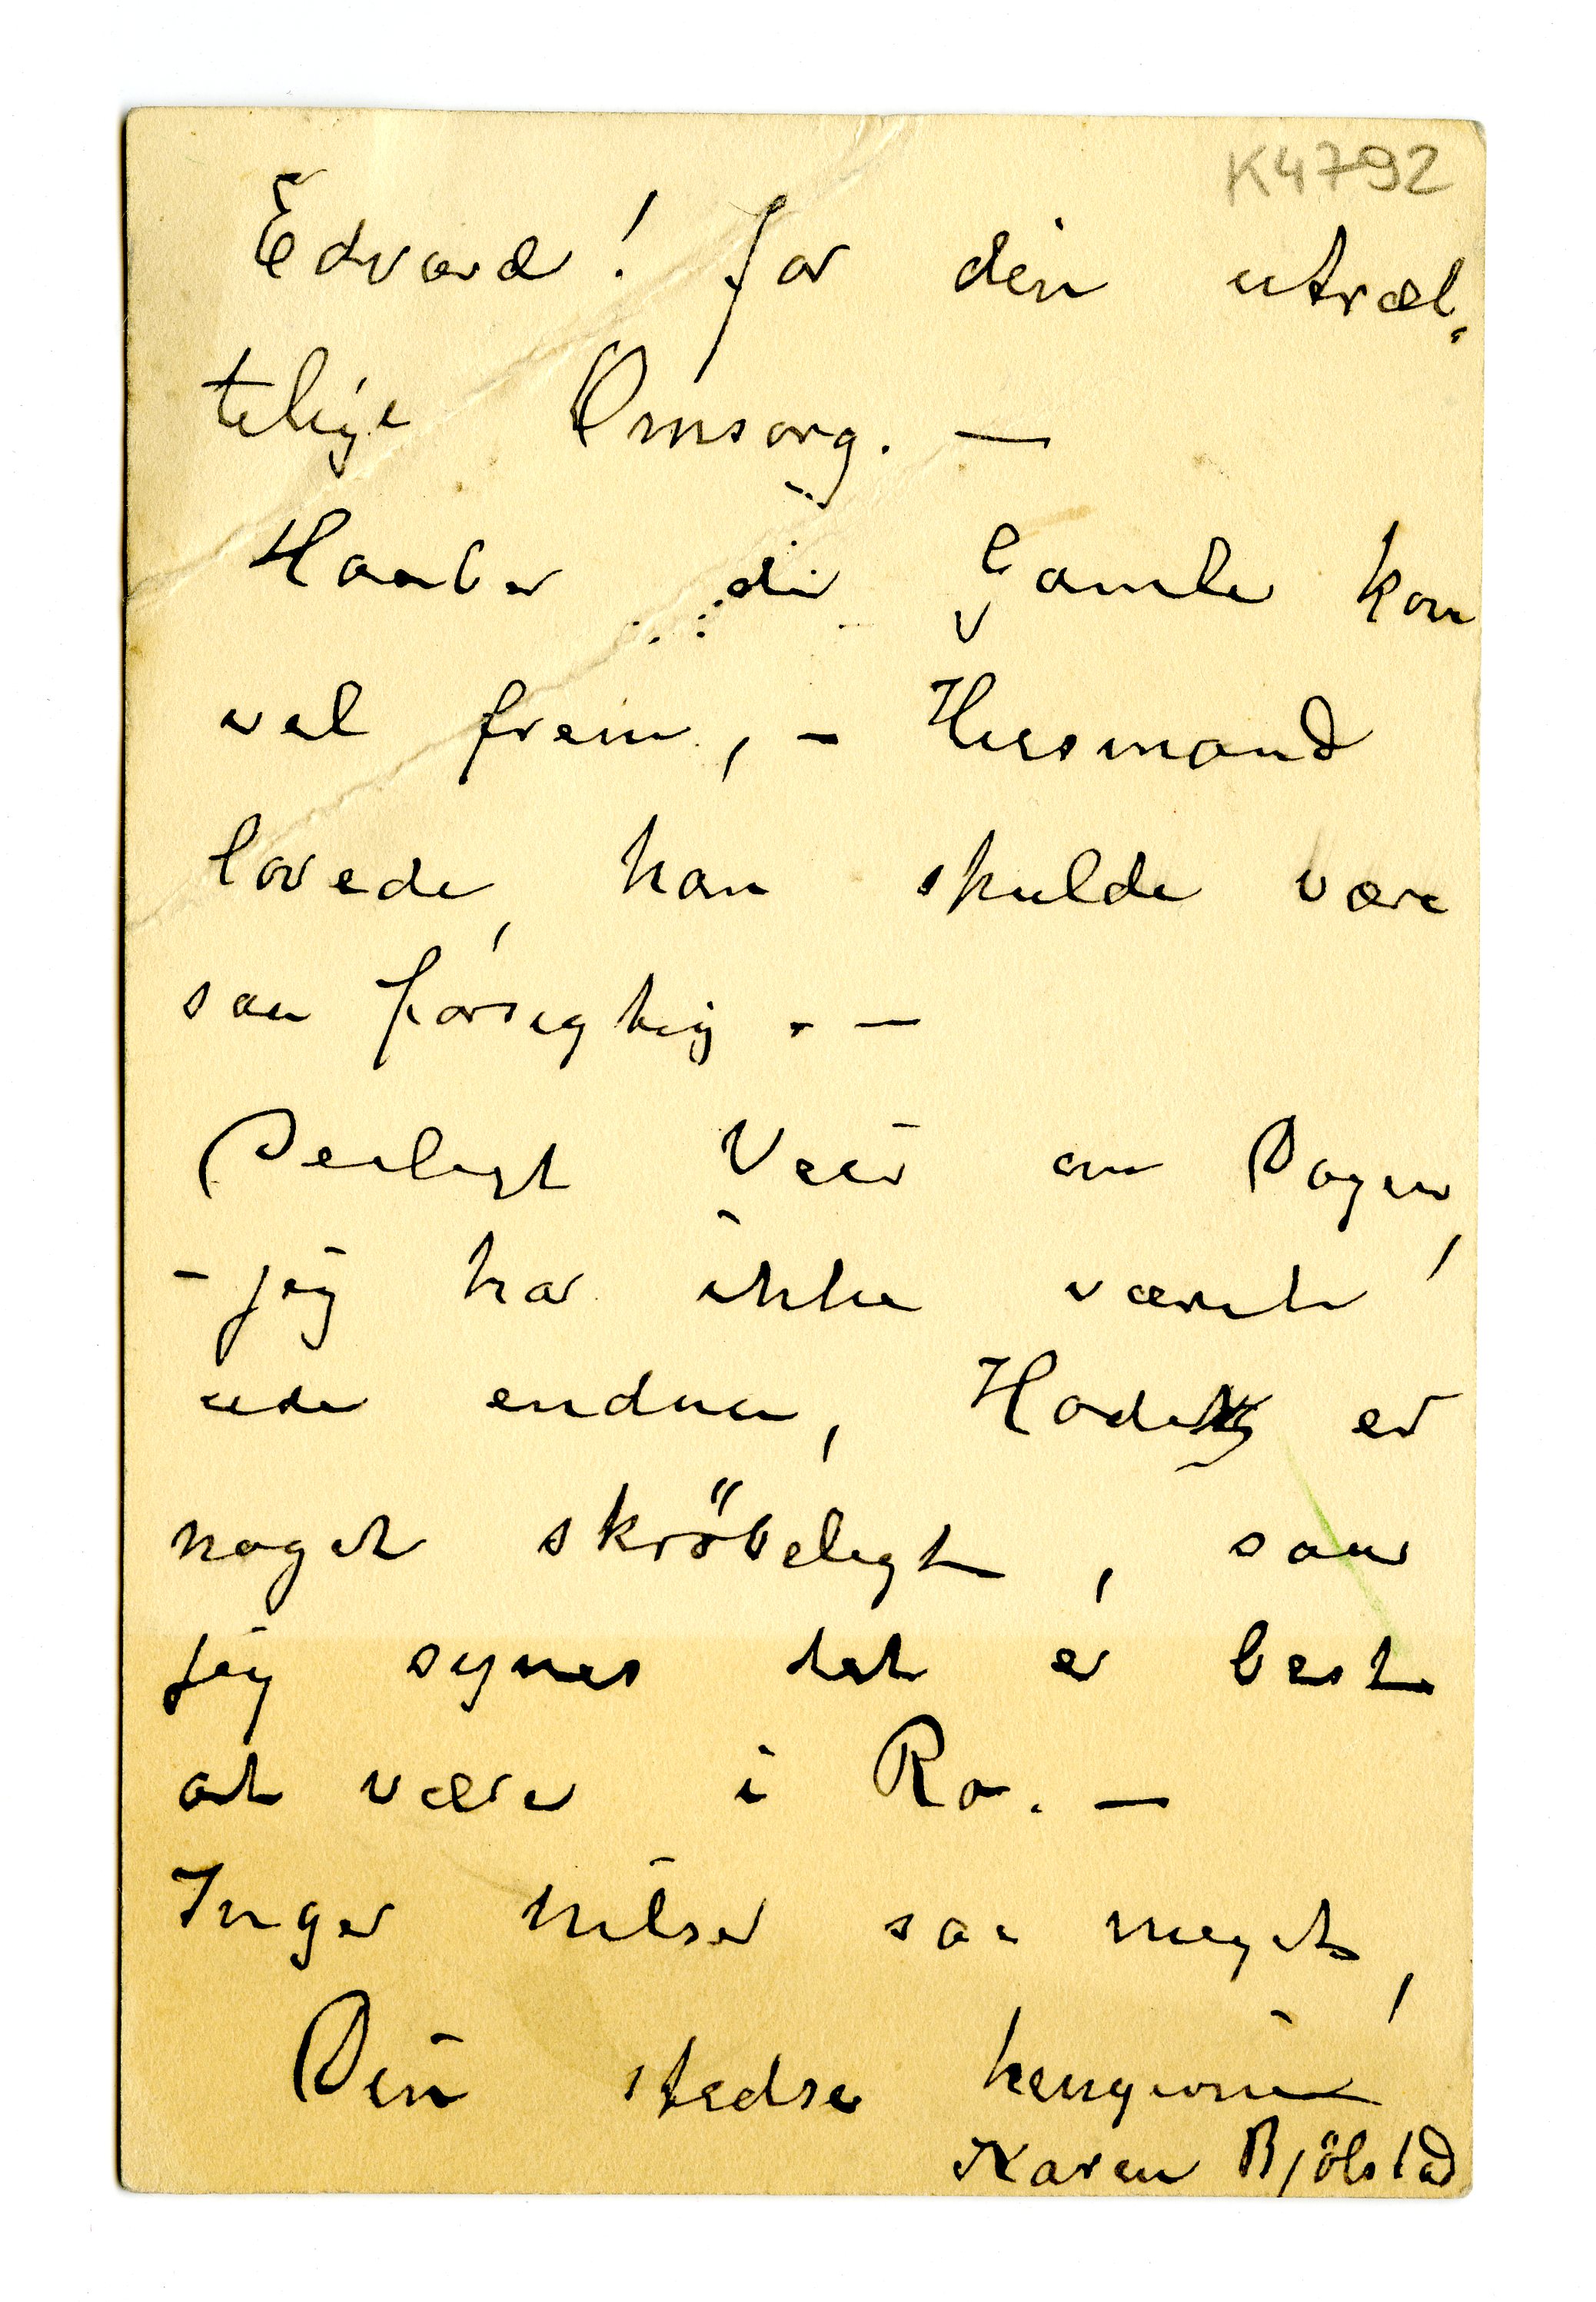 K4792
Edvard! for din utræt-
telige Omsorg. —
Haaber du Gamle kom
vel frem, – Husmand
lovede, han skulde være
saa forsigtig. —
Deiligt Veir om Dagen,
– jeg har ikke været
ude endnu, Hodet er
noget skröbeligt, saa
jeg synes det er best
at være i Ro. —
Inger hilser saa meget,
Din stedse hengivne
Karen Bjölstad